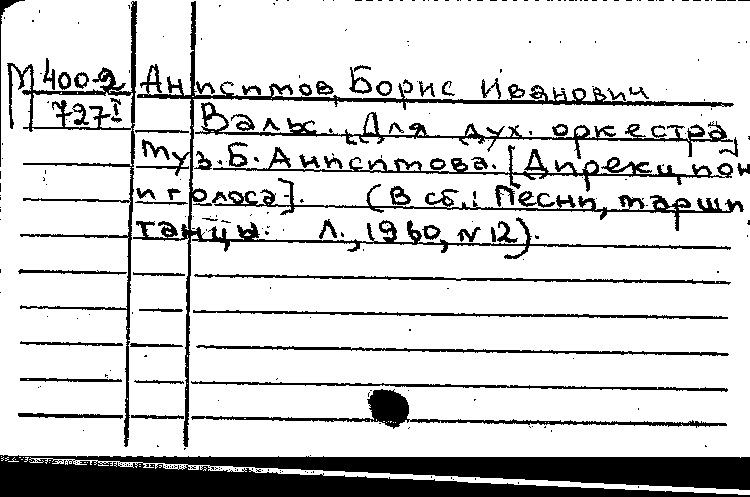 М 400-2 Анисимов, Борис Иванович
727I Вальс. Для дух. оркестра.
Муз. Б. Анисимова. [Дирекцион
и голоса]. (В сб.: Песни, марши,
танцы. Л., 1960, № 12).